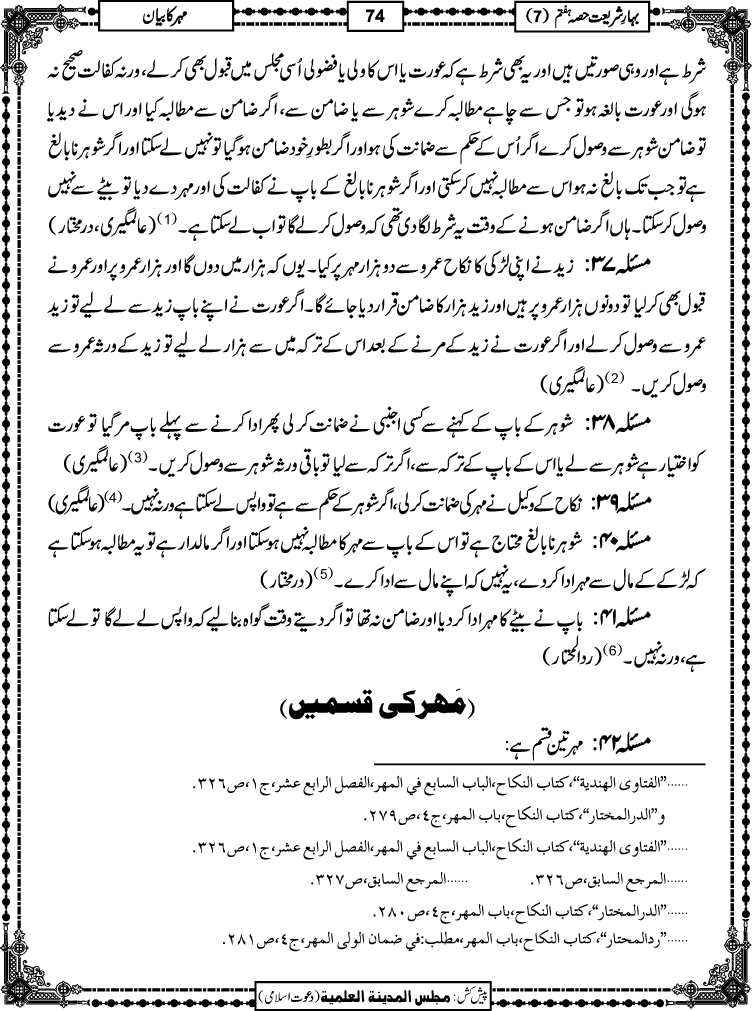 بہارِ شریعت حصہ ہفتم (7)
74
مہر کا بیان
شرط ہے اور وہی صورتیں ہیں اور یہ بھی شرط ہے کہ عورت یا اس کا ولی یا فضولی اُسی مجلس میں قبول بھی کر لے، ورنہ کفالت صحیح نہ
ہوگی اور عورت بالغہ ہو تو جس سے چاہے مطالبہ کرے شوہر سے یا ضامن سے، اگر ضامن سے مطالبہ کیا اور اس نے دیدیا
تو ضامن شوہر سے وصول کرے اگر اُس کے حکم سے ضمانت کی ہو اور اگر بطورِ خود ضامن ہوگیا تو نہیں لے سکتا اور اگر شوہر نابالغ
ہے تو جب تک بالغ نہ ہو اس سے مطالبہ نہیں کر سکتی اور اگر شوہر نابالغ کے باپ نے کفالت کی اور مہر دے دیا تو بیٹے سے نہیں
وصول کر سکتا۔ ہاں اگر ضامن ہونے کے وقت یہ شرط لگا دی تھی کہ وصول کر لے گا تو اب لے سکتا ہے۔ (1) (عالمگیری، درمختار)
مسئلہ ۳۷: زید نے اپنی لڑکی کا نکاح عمرو سے دو ہزار مہر پر کیا۔ یوں کہ ہزار میں دوں گا اور ہزار عمرو پر اور عمرو نے
قبول بھی کر لیا تو دونوں ہزار عمرو پر ہیں اور زید ہزار کا ضامن قرار دیا جائے گا۔ اگر عورت نے اپنے باپ زید سے لے لیے تو زید
عمرو سے وصول کر لے اور اگر عورت نے زید کے مرنے کے بعد اس کے ترکہ میں سے ہزار لے لیے تو زید کے ورثہ عمرو سے
وصول کریں۔ (2) (عالمگیری)
مسئلہ ۳۸: شوہر کے باپ کے کہنے سے کسی اجنبی نے ضمانت کر لی پھر ادا کرنے سے پہلے باپ مر گیا تو عورت
کو اختیار ہے شوہر سے لے یا اس کے باپ کے ترکہ سے، اگر ترکہ سے لیا تو باقی ورثہ شوہر سے وصول کریں۔ (3) (عالمگیری)
مسئلہ ۳۹: نکاح کے وکیل نے مہر کی ضمانت کر لی، اگر شوہر کے حکم سے ہے تو واپس لے سکتا ہے ورنہ نہیں۔ (4) (عالمگیری)
مسئلہ ۴۰: شوہر نابالغ محتاج ہے تو اس کے باپ سے مہر کا مطالبہ نہیں ہوسکتا اور اگر مالدار ہے تو یہ مطالبہ ہوسکتا ہے
کہ لڑکے کے مال سے مہر ادا کر دے، یہ نہیں کہ اپنے مال سے ادا کرے۔ (5) (درمختار)
مسئلہ ۴۱: باپ نے بیٹے کا مہر ادا کر دیا اور ضامن نہ تھا تو اگر دیتے وقت گواہ بنا لیے کہ واپس لے لے گا تو لے سکتا
ہے، ورنہ نہیں۔ (6) (ردالمحتار)
(مَہر کی قسمیں)
مسئلہ ۴۲: مہر تین قسم ہے:
......”الفتاوی الھندیة“، کتاب النکاح، الباب السابع في المھر، الفصل الرابع عشر، ج۱، ص۳۲٦.
و”الدرالمختار“، کتاب النکاح، باب المھر، ج٤، ص۲۷۹.
......”الفتاوی الھندیة“، کتاب النکاح، الباب السابع في المھر، الفصل الرابع عشر، ج۱، ص۳۲٦.
......المرجع السابق، ص۳۲٦. ......المرجع السابق، ص۳۲۷.
......”الدرالمختار“، کتاب النکاح، باب المھر، ج٤، ص۲۸۰.
......”ردالمحتار“، کتاب النکاح، باب المھر، مطلب: في ضمان الولی المھر، ج٤، ص۲۸۱.
پیش کش: مجلس المدینة العلمیة (دعوت اسلامی)